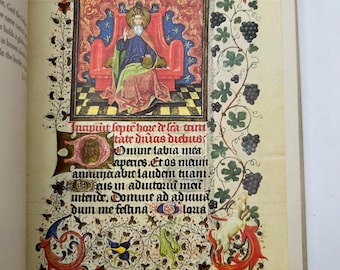 Incipiunt septe hore de scā trini
tate dn̄icis diebus.
Domine labia mea
aperies. Et os meum
annunciabit laudem tuam
Deus in adiutorium meū
intende. Domine ad adiuuā
dum me festina Gloria